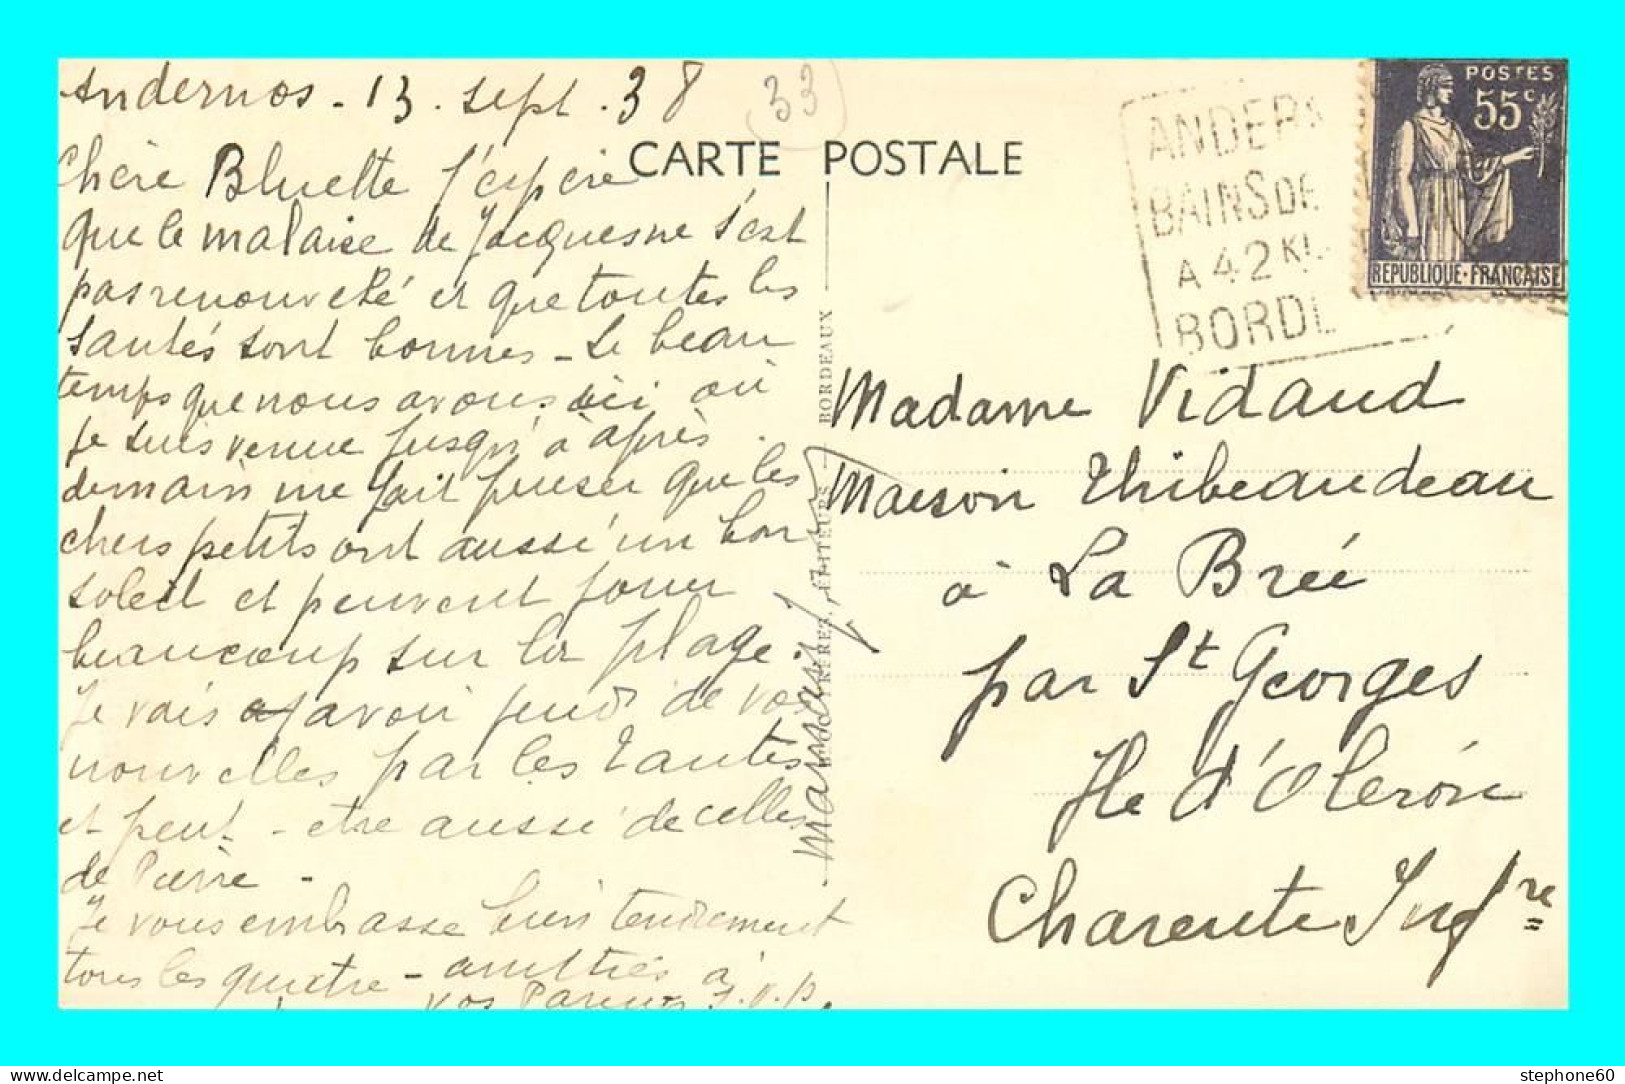 Andernos - 13. Sept. 38
33
Chère Bluette J'espère
que le malaise de Jacques ne s'est
pas renouvelé et que toutes les
santés sont bonnes - Le beau
temps que nous avons ici où
je suis venue jusqu'à après
demain me fait penser que les
chers petits ont aussi un bon
soleil et peuvent jouer
beaucoup sur la plage.
Je vais avoir jeudi de vos
nouvelles par les Tantes
et peut-être aussi de celles
de Pierre -
Je vous embrasse bien tendrement
tous les quatre - amitiés à
vos Parents s.v.p.
CARTE POSTALE
ÉDITEURS - BORDEAUX
ANDERN
BAINS DE
A 42 KI
BORDE
POSTES
55c
REPUBLIQUE·FRANÇAISE
Madame Vidaud
Maison Thibeaudeau
à La Brée
par St Georges
Ile d'Oleron
Charente Infre
stephone60